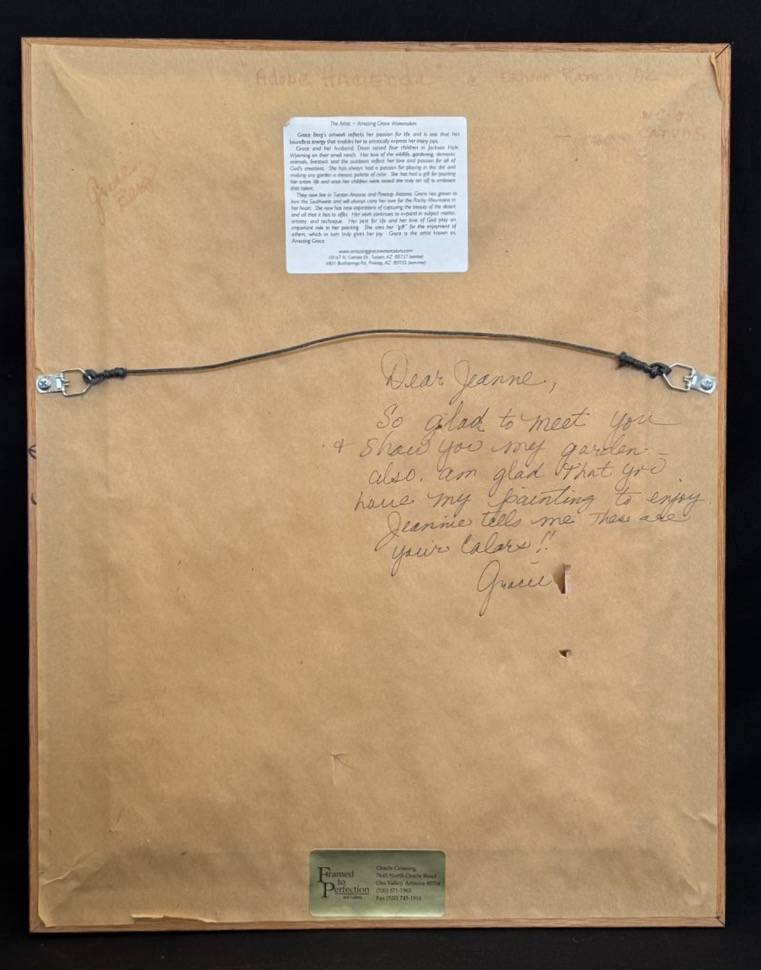 "Adobe Hacienda"
Canvas
The Artist ~ Amazing Grace Watercolors
Grace Berg's artwork reflects her passion for life and is one that her
boundless energy that enables her to artistically express her many joys.
Grace and her husband, Dean raised four children in Jackson Hole
Wyoming on their small ranch. Her love of the wildlife, gardening, domestic
animals, livestock and the outdoors reflect her love and passion for all of
God's creations. She has always had a passion for playing in the dirt and
making any garden a mosaic palette of color. She has had a gift for painting
her entire life and once her children were raised she truly set off to embrace
that talent.
They now live in Tucson Arizona and Pinetop Arizona. Grace has grown to
love the Southwest and will always carry her love for the Rocky Mountains in
her heart. She now has new aspirations of capturing the beauty of the desert
and all that it has to offer. Her work continues to expand in subject matter,
artistry, and technique. Her zest for life and her love of God play an
important role in her painting. She uses her "gift" for the enjoyment of
others, which in turn truly gives her joy. Grace is the artist known as,
Amazing Grace.
www.amazinggracewatercolors.com
Dr. Tucson, AZ 85737 (winter)
Pinetop, AZ 85935 (summer)
Dear Jeanne,
So glad to meet you
& show you my garden –
also. am glad that you
have my painting to enjoy.
Jeannie tells me these are
your Colors!!
Gracie
Framed
In
Perfection
and Gallery
Oracle Crossing
7645 North Oracle Road
Oro Valley, Arizona 85704
(520) 571-1963
Fax (520) 745-1916